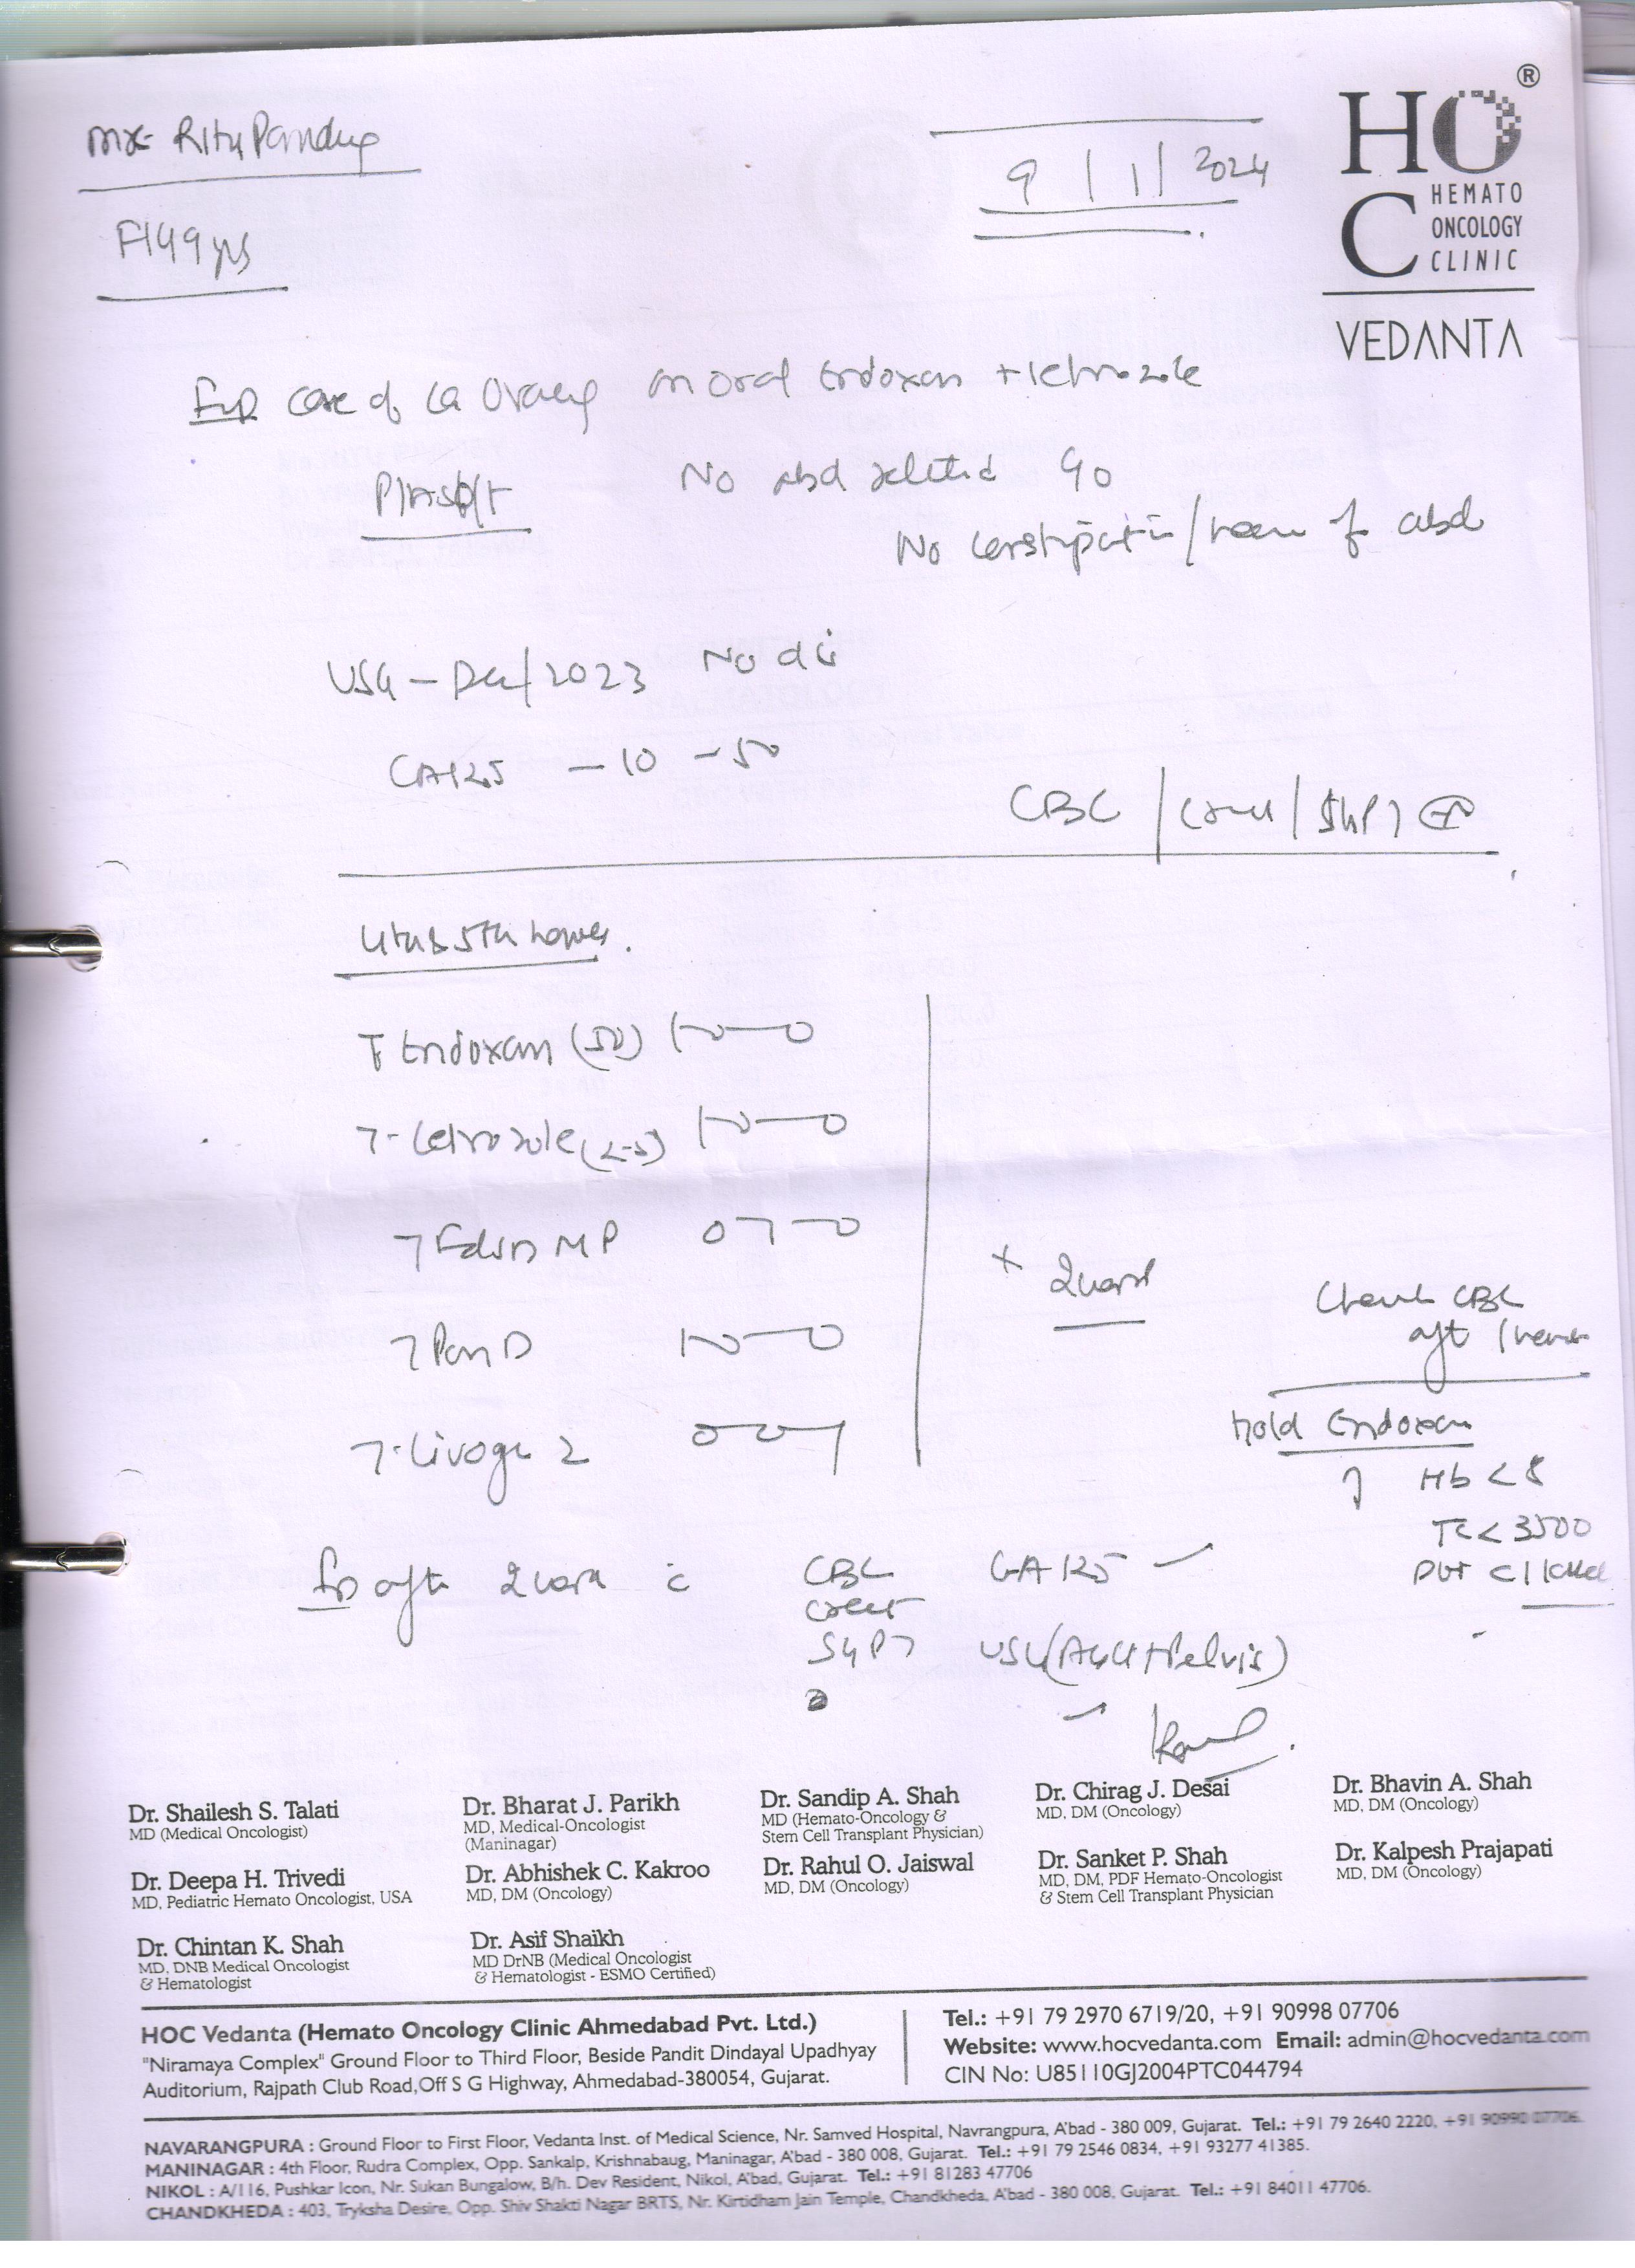 Ritu Pandya
9/1/2024
F/49 yrs
HOC®
HEMATO
ONCOLOGY
CLINIC
VEDANTA
F/UP case of Ca Ovary on oral Endoxan + letrozole
No abd related
No constipation / of abd
USG - Dec/2023 No dis
CA125 - 10 - 50
CBC / creat / SGPT
4th & 5th
T Endoxan (50) 1-0-0
T- Letrozole (2.5) 1-0-0
T MP 0-1-0
T Pan D 1-0-0
T- Livogen Z 0-0-1
x 2
Check CBC
aft 1
Hold Endoxan
Hb < 8
TC < 3500
Plt < 1
after 2 c̄ CBC CA125
creat
SGPT USG (Abd + Pelvis)
Dr. Shailesh S. Talati
MD (Medical Oncologist)
Dr. Bharat J. Parikh
MD, Medical-Oncologist
(Maninagar)
Dr. Sandip A. Shah
MD (Hemato-Oncology &
Stem Cell Transplant Physician)
Dr. Chirag J. Desai
MD, DM (Oncology)
Dr. Bhavin A. Shah
MD, DM (Oncology)
Dr. Deepa H. Trivedi
MD, Pediatric Hemato Oncologist, USA
Dr. Abhishek C. Kakroo
MD, DM (Oncology)
Dr. Rahul O. Jaiswal
MD, DM (Oncology)
Dr. Sanket P. Shah
MD, DM, PDF Hemato-Oncologist
& Stem Cell Transplant Physician
Dr. Kalpesh Prajapati
MD, DM (Oncology)
Dr. Chintan K. Shah
MD, DNB Medical Oncologist
& Hematologist
Dr. Asif Shaikh
MD DrNB (Medical Oncologist
& Hematologist - ESMO Certified)
HOC Vedanta (Hemato Oncology Clinic Ahmedabad Pvt. Ltd.)
"Niramaya Complex" Ground Floor to Third Floor, Beside Pandit Dindayal Upadhyay
Auditorium, Rajpath Club Road,Off S G Highway, Ahmedabad-380054, Gujarat.
Tel.: +91 79 2970 6719/20, +91 90998 07706
Website: www.hocvedanta.com Email: admin@hocvedanta.com
CIN No: U85110GJ2004PTC044794
NAVARANGPURA : Ground Floor to First Floor, Vedanta Inst. of Medical Science, Nr. Samved Hospital, Navrangpura, A'bad - 380 009, Gujarat. Tel.: +91 79 2640 2220, +91 90990 07706.
MANINAGAR : 4th Floor, Rudra Complex, Opp. Sankalp, Krishnabaug, Maninagar, A'bad - 380 008, Gujarat. Tel.: +91 79 2546 0834, +91 93277 41385.
NIKOL : A/116, Pushkar Icon, Nr. Sukan Bungalow, B/h. Dev Resident, Nikol, A'bad, Gujarat. Tel.: +91 81283 47706
CHANDKHEDA : 403, Tryksha Desire, Opp. Shiv Shakti Nagar BRTS, Nr. Kirtidham Jain Temple, Chandkheda, A'bad - 380 008, Gujarat. Tel.: +91 84011 47706.